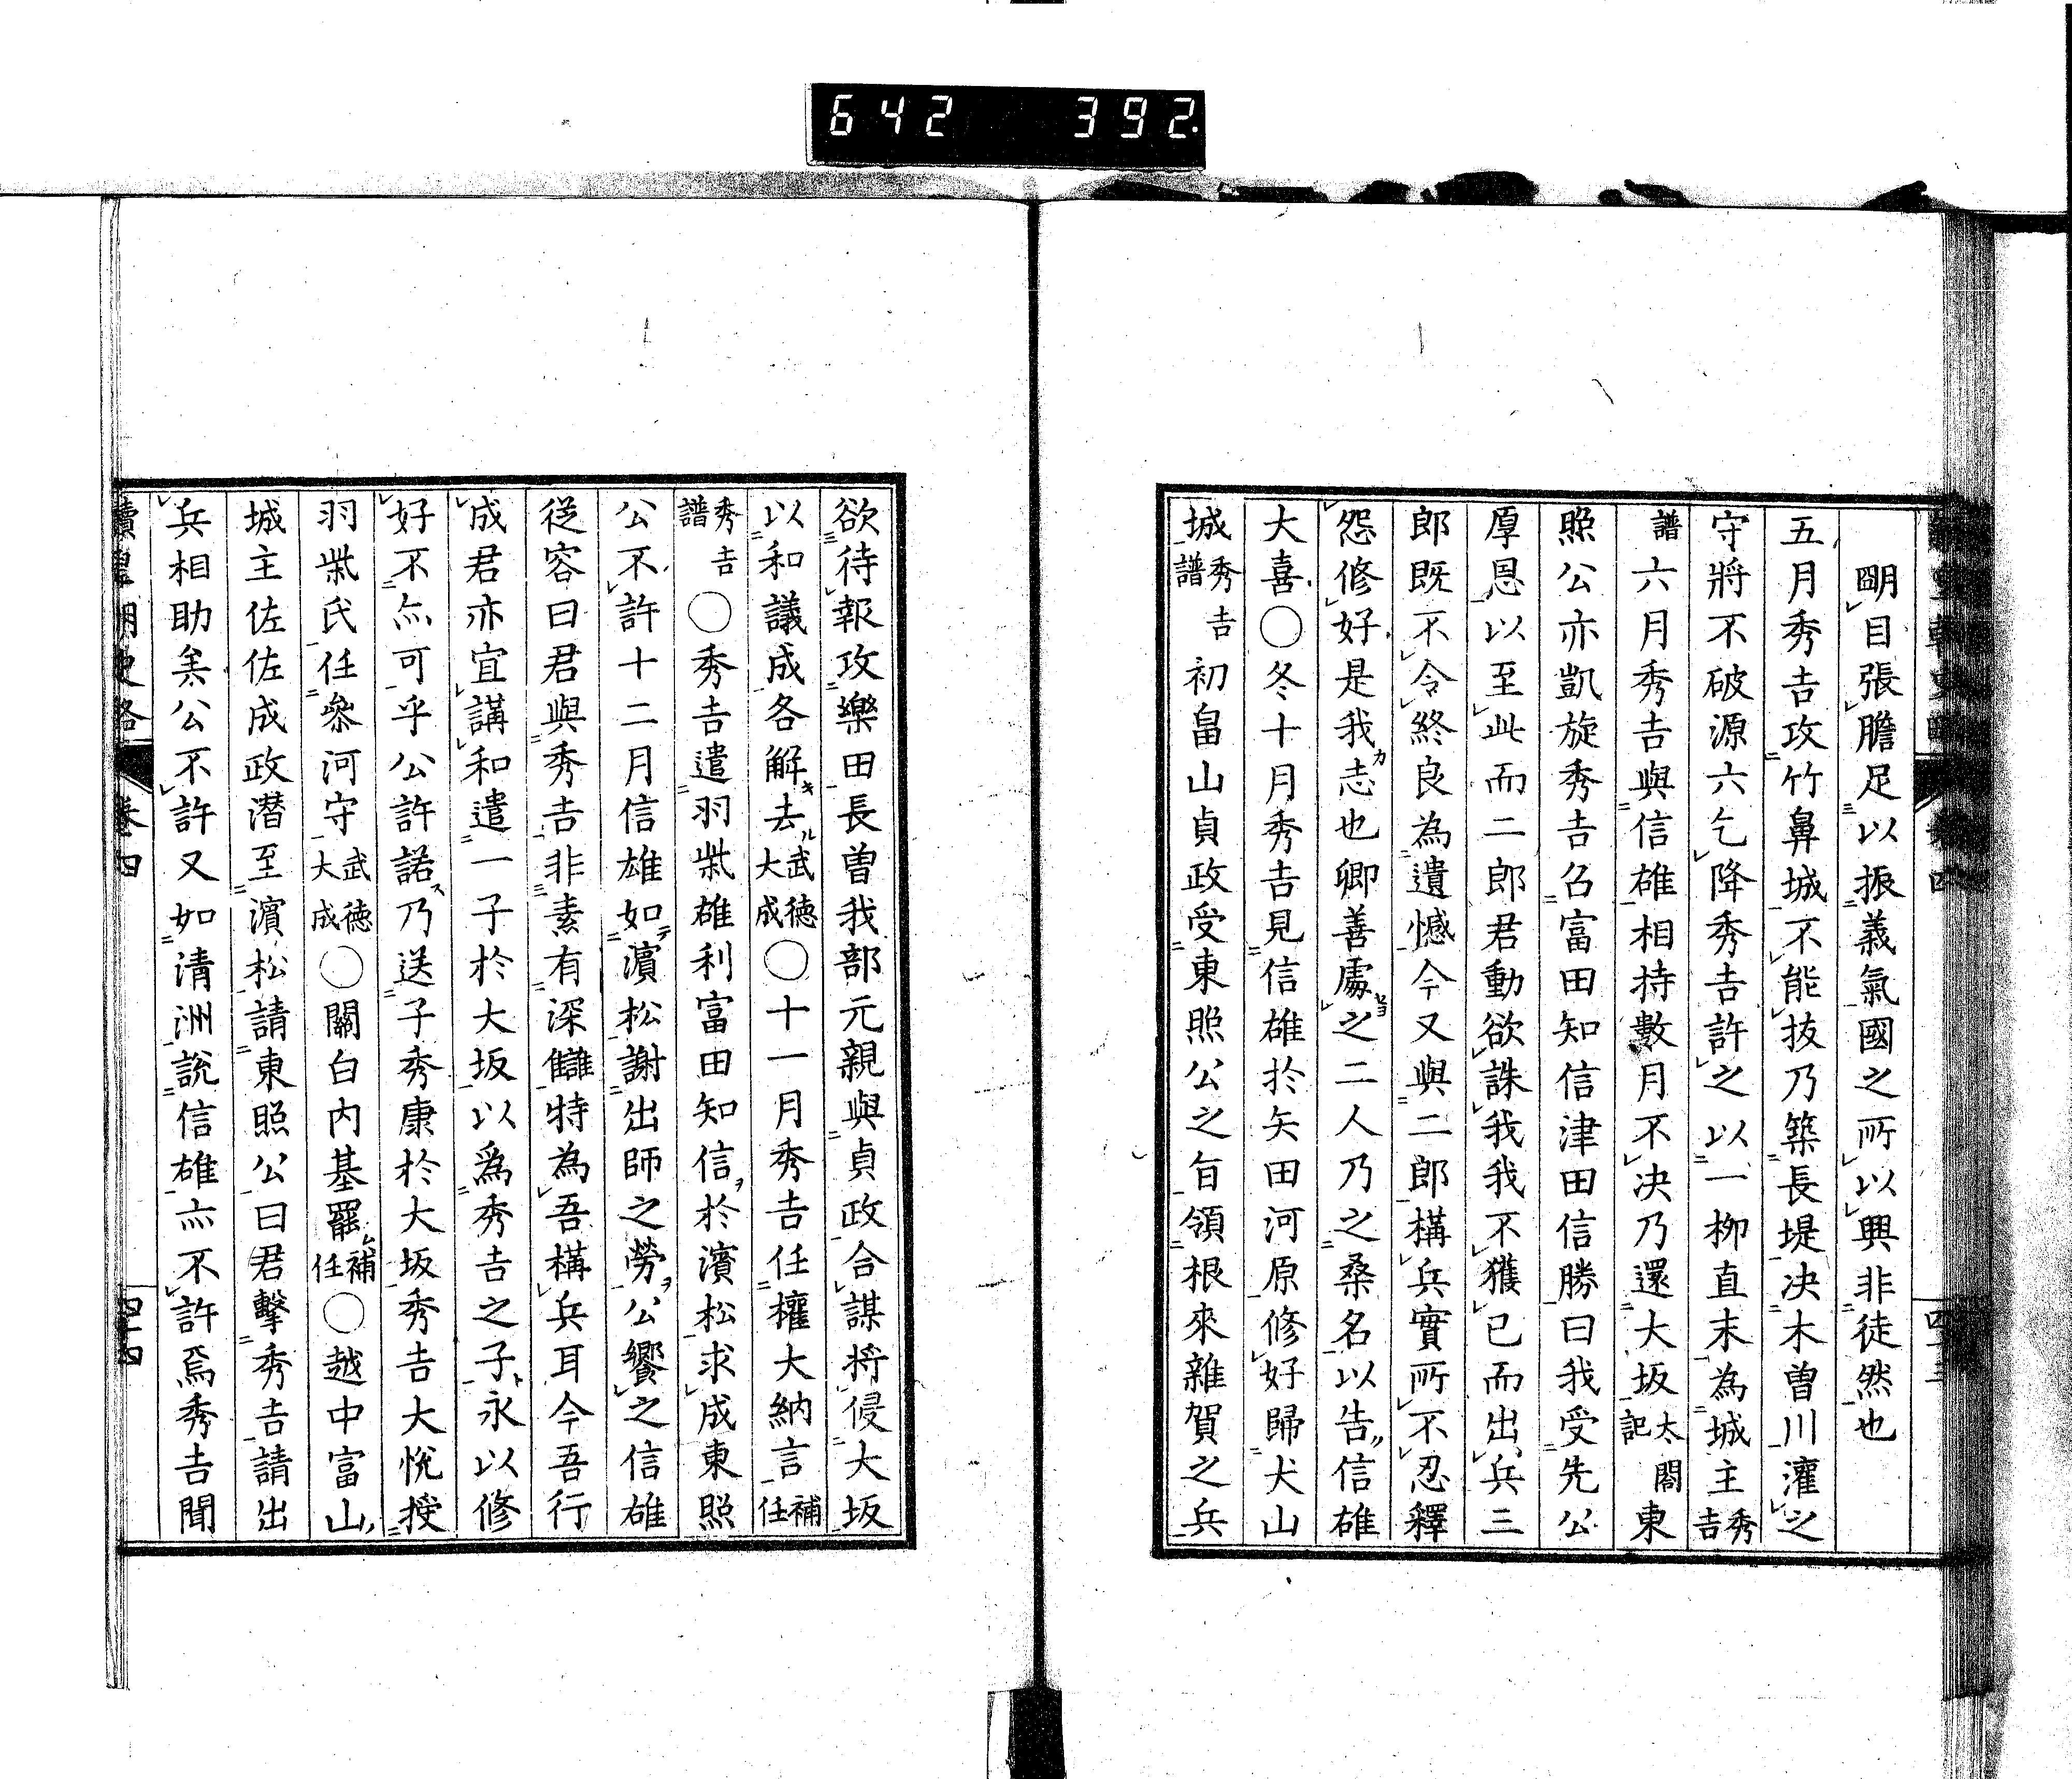 642 392.
朙目張膽足以振義氣國之所以興非徒然也
五月秀吉攻竹鼻城不能拔乃築長堤决木曾川灌之
守將不破源六乞降秀吉許之以一柳直末為城主秀吉
譜六月秀吉與信雄相持數月不决乃還大坂太閤記東
照公亦凱旋秀吉召富田知信津田信勝曰我受先公
厚恩以至此而二郎君動欲誅我我不獲已而出兵三
郎既不令終良為遺憾今又與二郎構兵實所不忍釋
怨修好是我志也卿善處之二人乃之桑名以告信雄
大喜〇冬十月秀吉見信雄於矢田河原修好歸犬山
城秀吉譜初畠山貞政受東照公之旨領根來雜賀之兵
欲待報攻樂田長曾我部元親與貞政合謀將侵大坂
以和議成各解去武德大成〇十一月秀吉任權大納言補任
秀吉譜〇秀吉遣羽柴雄利富田知信於濱松求成東照
公不許十二月信雄如濱松謝出師之勞公饗之信雄
從容曰君與秀吉非素有深讎特為吾構兵耳今吾行
成君亦宜講和遣一子於大坂以爲秀吉之子永以修
好不亦可乎公許諾乃送子秀康於大坂秀吉大悅授
羽柴氏任參河守武德大成〇關白內基罷補任〇越中富山
城主佐佐成政潛至濱松請東照公曰君擊秀吉請出
兵相助矣公不許又如清洲說信雄亦不許焉秀吉聞
續皇朝史略 卷四 四十四